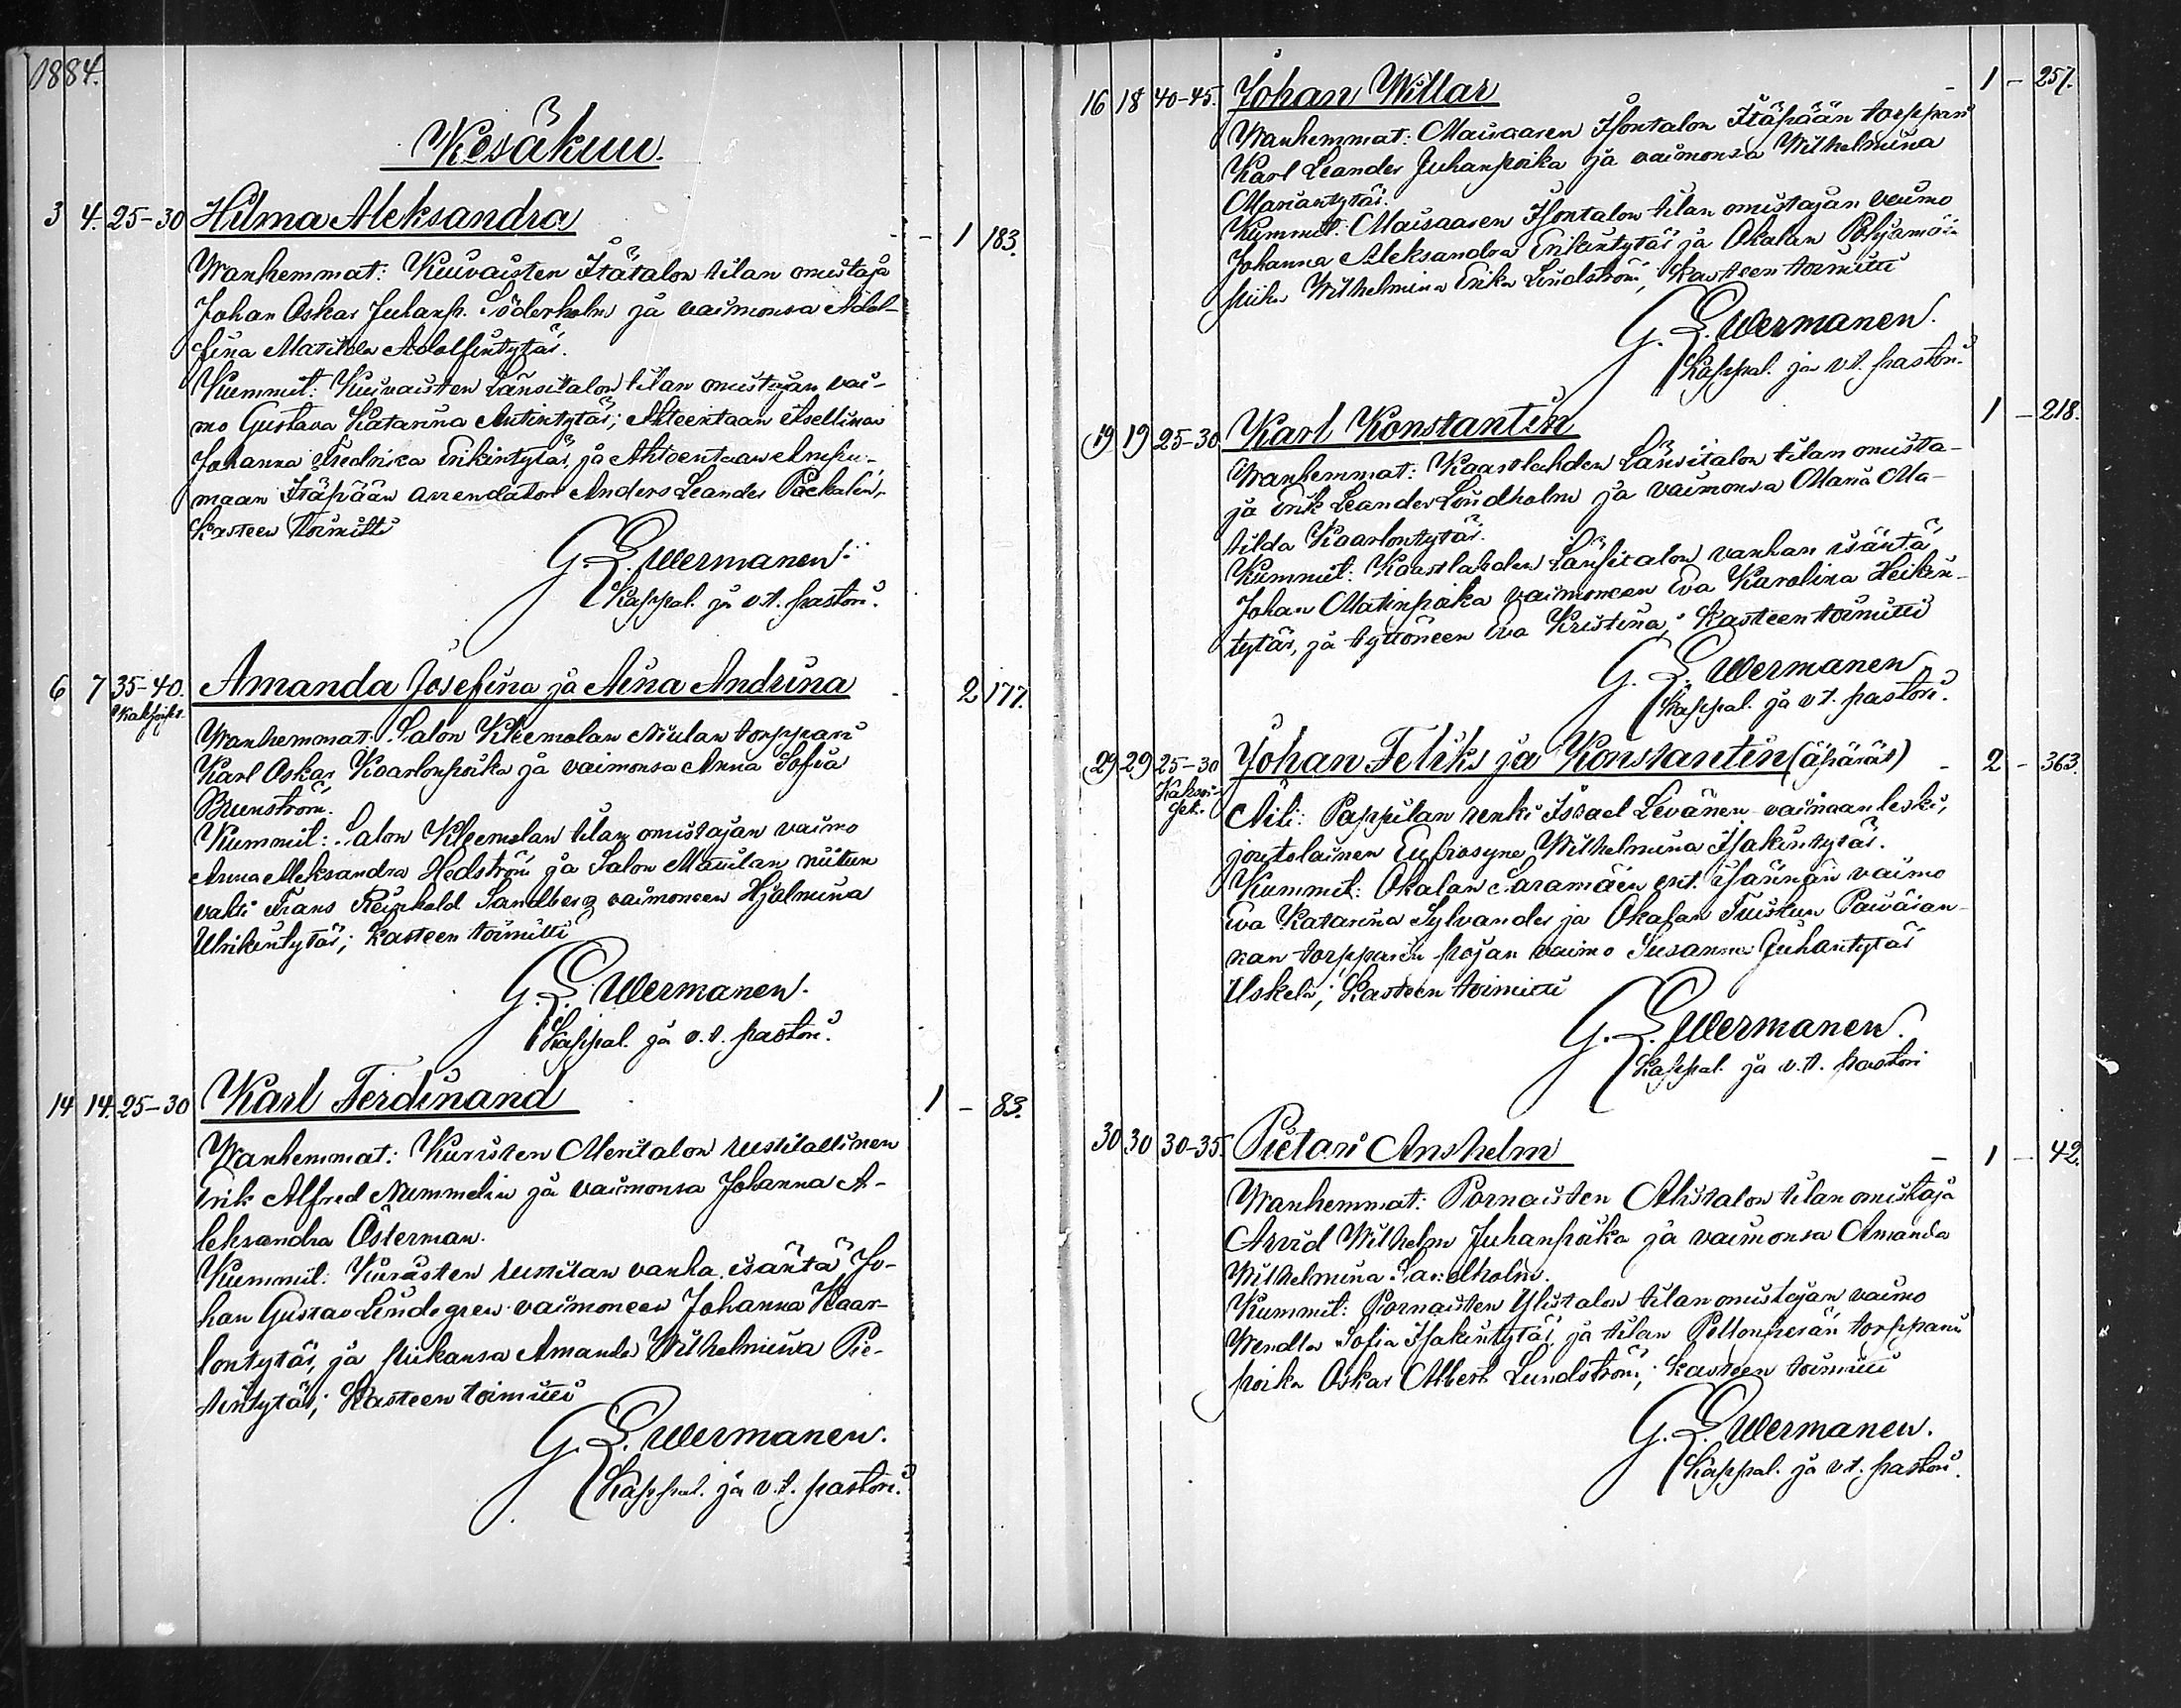 1884.
Kesäkuu.
3 4. 25-30 Hilma Aleksandra - - 1 183.
Wanhemmat: Kuivaisten Itätalon tilan omistaja
Johan Oskar Juhanp. Söderholm ja vaimonsa Adol-
fina Matilda Adolfintytär.
Kummit: Kuivaisten Länsitalon tilan omistajan vai-
mo Gustava Katarina Antintytär;
Johanna Fredrika Erikintytär ja
maan Itäpään arrendatori Anders Leander
Kasteen toimitti
G. E. Wermanen.
Kappal. ja v.t. pastori.
6 7 35-40. Amanda Josefina ja Aina Andrina - 2 177.
Kaksoiset.
Wanhemmat: Salon Kleemolan Niulan torppari
Karl Oskar Kaarlonpoika ja vaimonsa Anna Sofia
Brunström.
Kummit: Salon Kleemolan tilan omistajan vaimo
Anna Aleksandra Hedström ja Salon Mattilan niitun
vahti Frans Reinhold Sandberg vaimoneen Hjelmina
Ulrikintytär; kasteen toimitti
G. E. Wermanen.
Kappal. ja v.t. pastori.
14 14. 25-30 Karl Ferdinand 1 - 83.
Wanhemmat: Kuristen Meritalon
Erik Alfred Nummelin ja vaimonsa Johanna A-
leksandra Österman.
Kummit: vanha isäntä Jo-
han Gustav Lindegren vaimoneen Johanna Kaar-
lontytär, ja piikansa Amanda Wilhelmina Pie-
tintytär; Kasteen toimitti
G. E. Wermanen.
Kappal. ja v.t. pastori.
16 18 40-45. Johan Willar - 1 - 257.
Wanhemmat: Maisaaren Isontalon Itäpään torppari
Karl Leander Juhanpoika ja vaimonsa Wilhelmina
Mariantytär.
Kummit: Maisaaren Isontalon tilan omistajan vaimo
Johanna Aleksandra Erikintytär ja Okalan
piika Wilhelmina Erika Lindström; Kasteen toimitti
G. E. Wermanen.
Kappal. ja v.t. pastori.
19 19 25-30 Karl Konstantin 1 - 218.
Wanhemmat: Kaastlahden Länsitalon tilan omista-
ja Erik Leander Lindholm ja vaimonsa Maria Ma-
tilda Kaarlontytär.
Kummit: Kaastlahden Länsitalon vanhan isäntä
Johan Matinpoika vaimoneen Eva Karolina Heikin-
tytär, ja tyttöneen Eva Kristina; Kasteen toimitti
G. E. Wermanen
Kappal. ja v.t. pastori.
29 29 25-30 Johan Feliks ja Konstantin (äpärät) - 2 - 363.
Kaksoi-
set.
Äiti: Pappilan renki Isaael Levänen vainaan leski,
joutolainen Eufrosyne Wilhelmina Isakintytär.
Kummit: Okalan Saramäen ent. isännän vaimo
Eva Katarina Sylvander ja Okalan Tuiskun Paivä
torpparin pojan vaimo Susanna Juhantytär
Uskela; Kasteen toimitti
G. E. Wermanen.
Kappal. ja v.t. pastori
30 30 30-35. Pietari Anshelm - 1 - 42.
Wanhemmat: Pornaisten Alistalon tilan omistaja
Arvid Wilhelm Juhanpoika ja vaimonsa Amanda
Wilhelmina Sandholm.
Kummit: Pornaisten Ylistalon tilan omistajan vaimo
Wendla Sofia Isakintytär, ja tilan Pellonperän torpparin
poika Oskar Albert Lundström; kasteen toimitti
G. E. Wermanen.
Kappal. ja v.t. pastori.